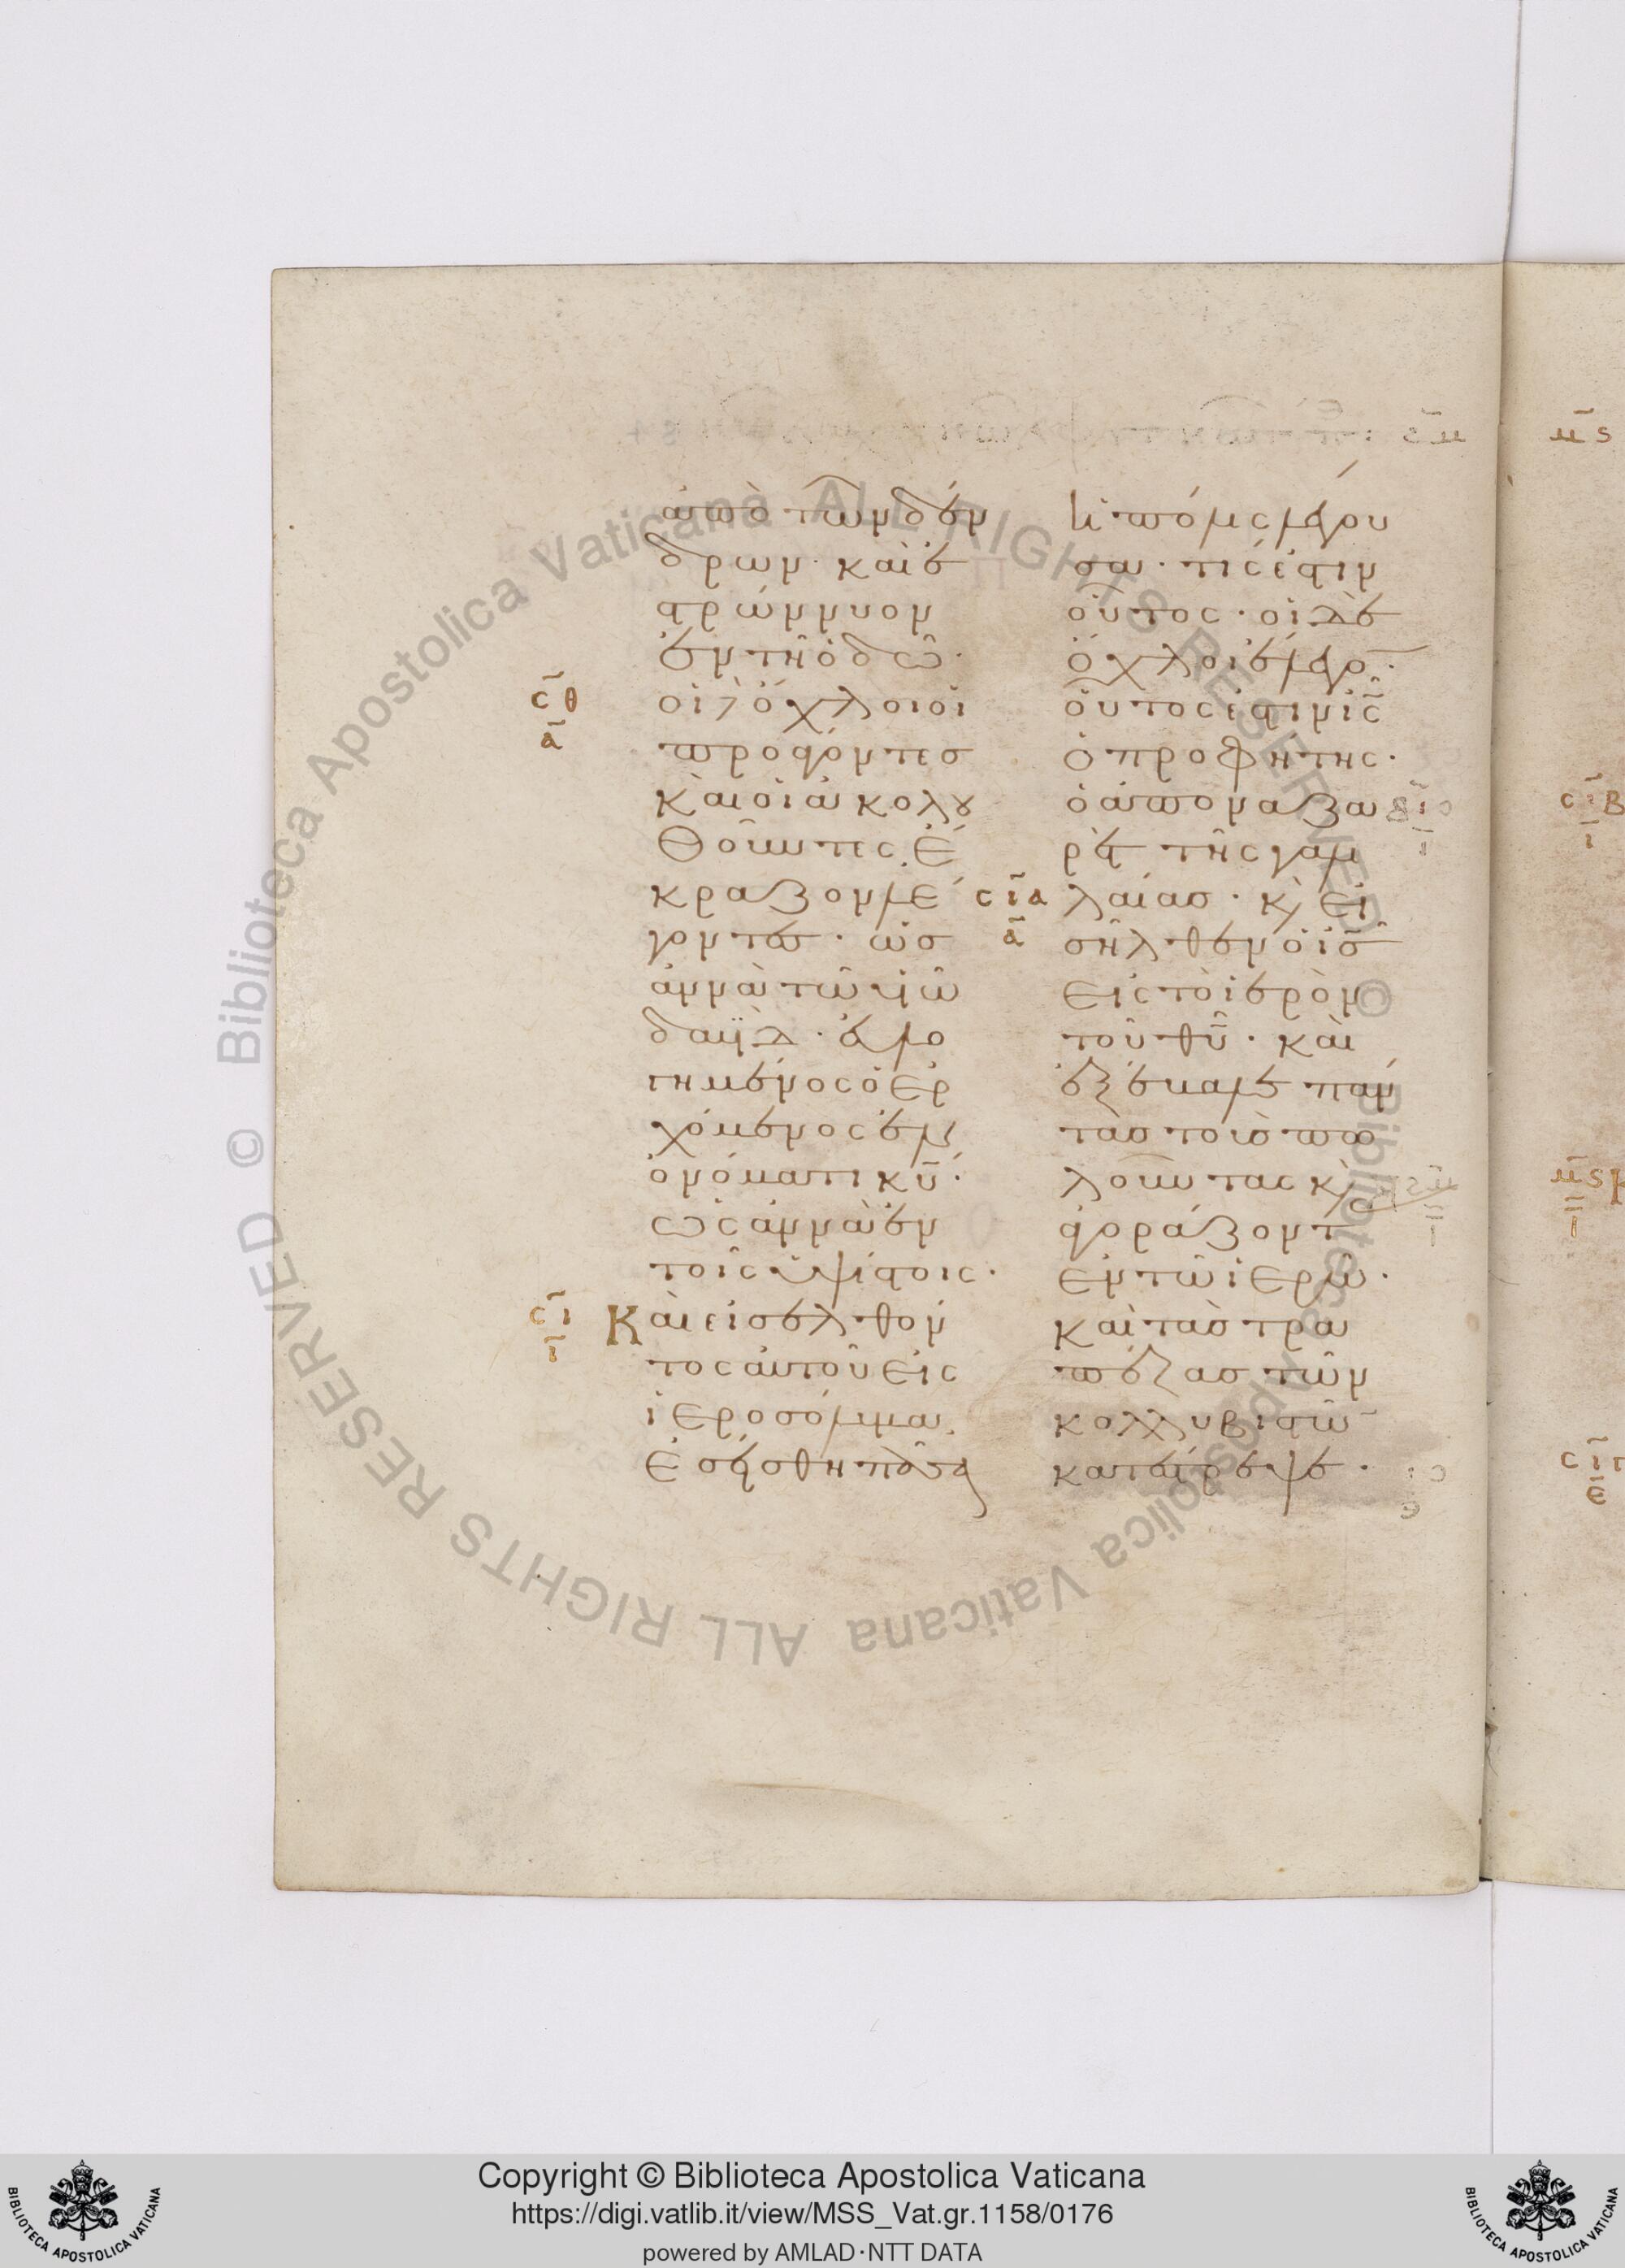 ἀπὸ τῶν δέν
δρων· καὶ ἐ
στρώννυον
ἐν τῆ ὁδῶ·
οἱ δὲ ὄχλοι οἱ
προάγοντες
καὶ οἱ ἀκολου
θοῦντες. ἔ
κραζον λέ
γοντες· ὡσ
αννὰ τῶ υἱῶ
δαυΐδ· εὐλο
γημένος ὁ ἐρ
χόμενος ἐν
ὀνόματι κ̅υ̅·
ὡς ἀννὰ ἐν
τοῖς ὑψίστοις·
Καὶ εἰσελθόν
τος αὐτοῦ εἰς
ἱεροσόλυμα.
ἐσείσθη πᾶσα
ἡ πόλις λέγου
σα· τίς ἐστιν
οὗτος· οἱ δὲ
ὄχλοι ἔλεγο̅·
οὗτός ἐστιν ι̅ς̅
ὁ προφήτης·
ὁ ἀπὸ ναζα
ρὲτ τῆς γαλι
λαίας· κ̀ εἰ
σῆλθεν ὁ ι̅ς̅
εἰς τὸ ἱερὸν
τοῦ θ̅υ̅· καὶ
ἐξέβαλε πάν
τας τοὺς πω
λοῦντας κ̀
ἀγοράζοντ
ἐν τῶ ἱερῶ·
καὶ τὰς τρα
πέζας τῶν
κολλυβιστῶ̅
κατέστρεψε·
σ̅θ
α̅
σ̅ι
ι̅
σ̅ια
α̅
Copyright © Biblioteca Apostolica Vaticana
https://digi.vatlib.it/view/MSS_Vat.gr.1158/0176
powered by AMLAD·NTT DATA
Biblioteca Apostolica Vaticana ALL RIGHTS RESERVED © Biblioteca Apostolica Vaticana ALL RIGHTS RESERVED ©
BIBLIOTECA APOSTOLICA VATICANA
BIBLIOTECA APOSTOLICA VATICANA